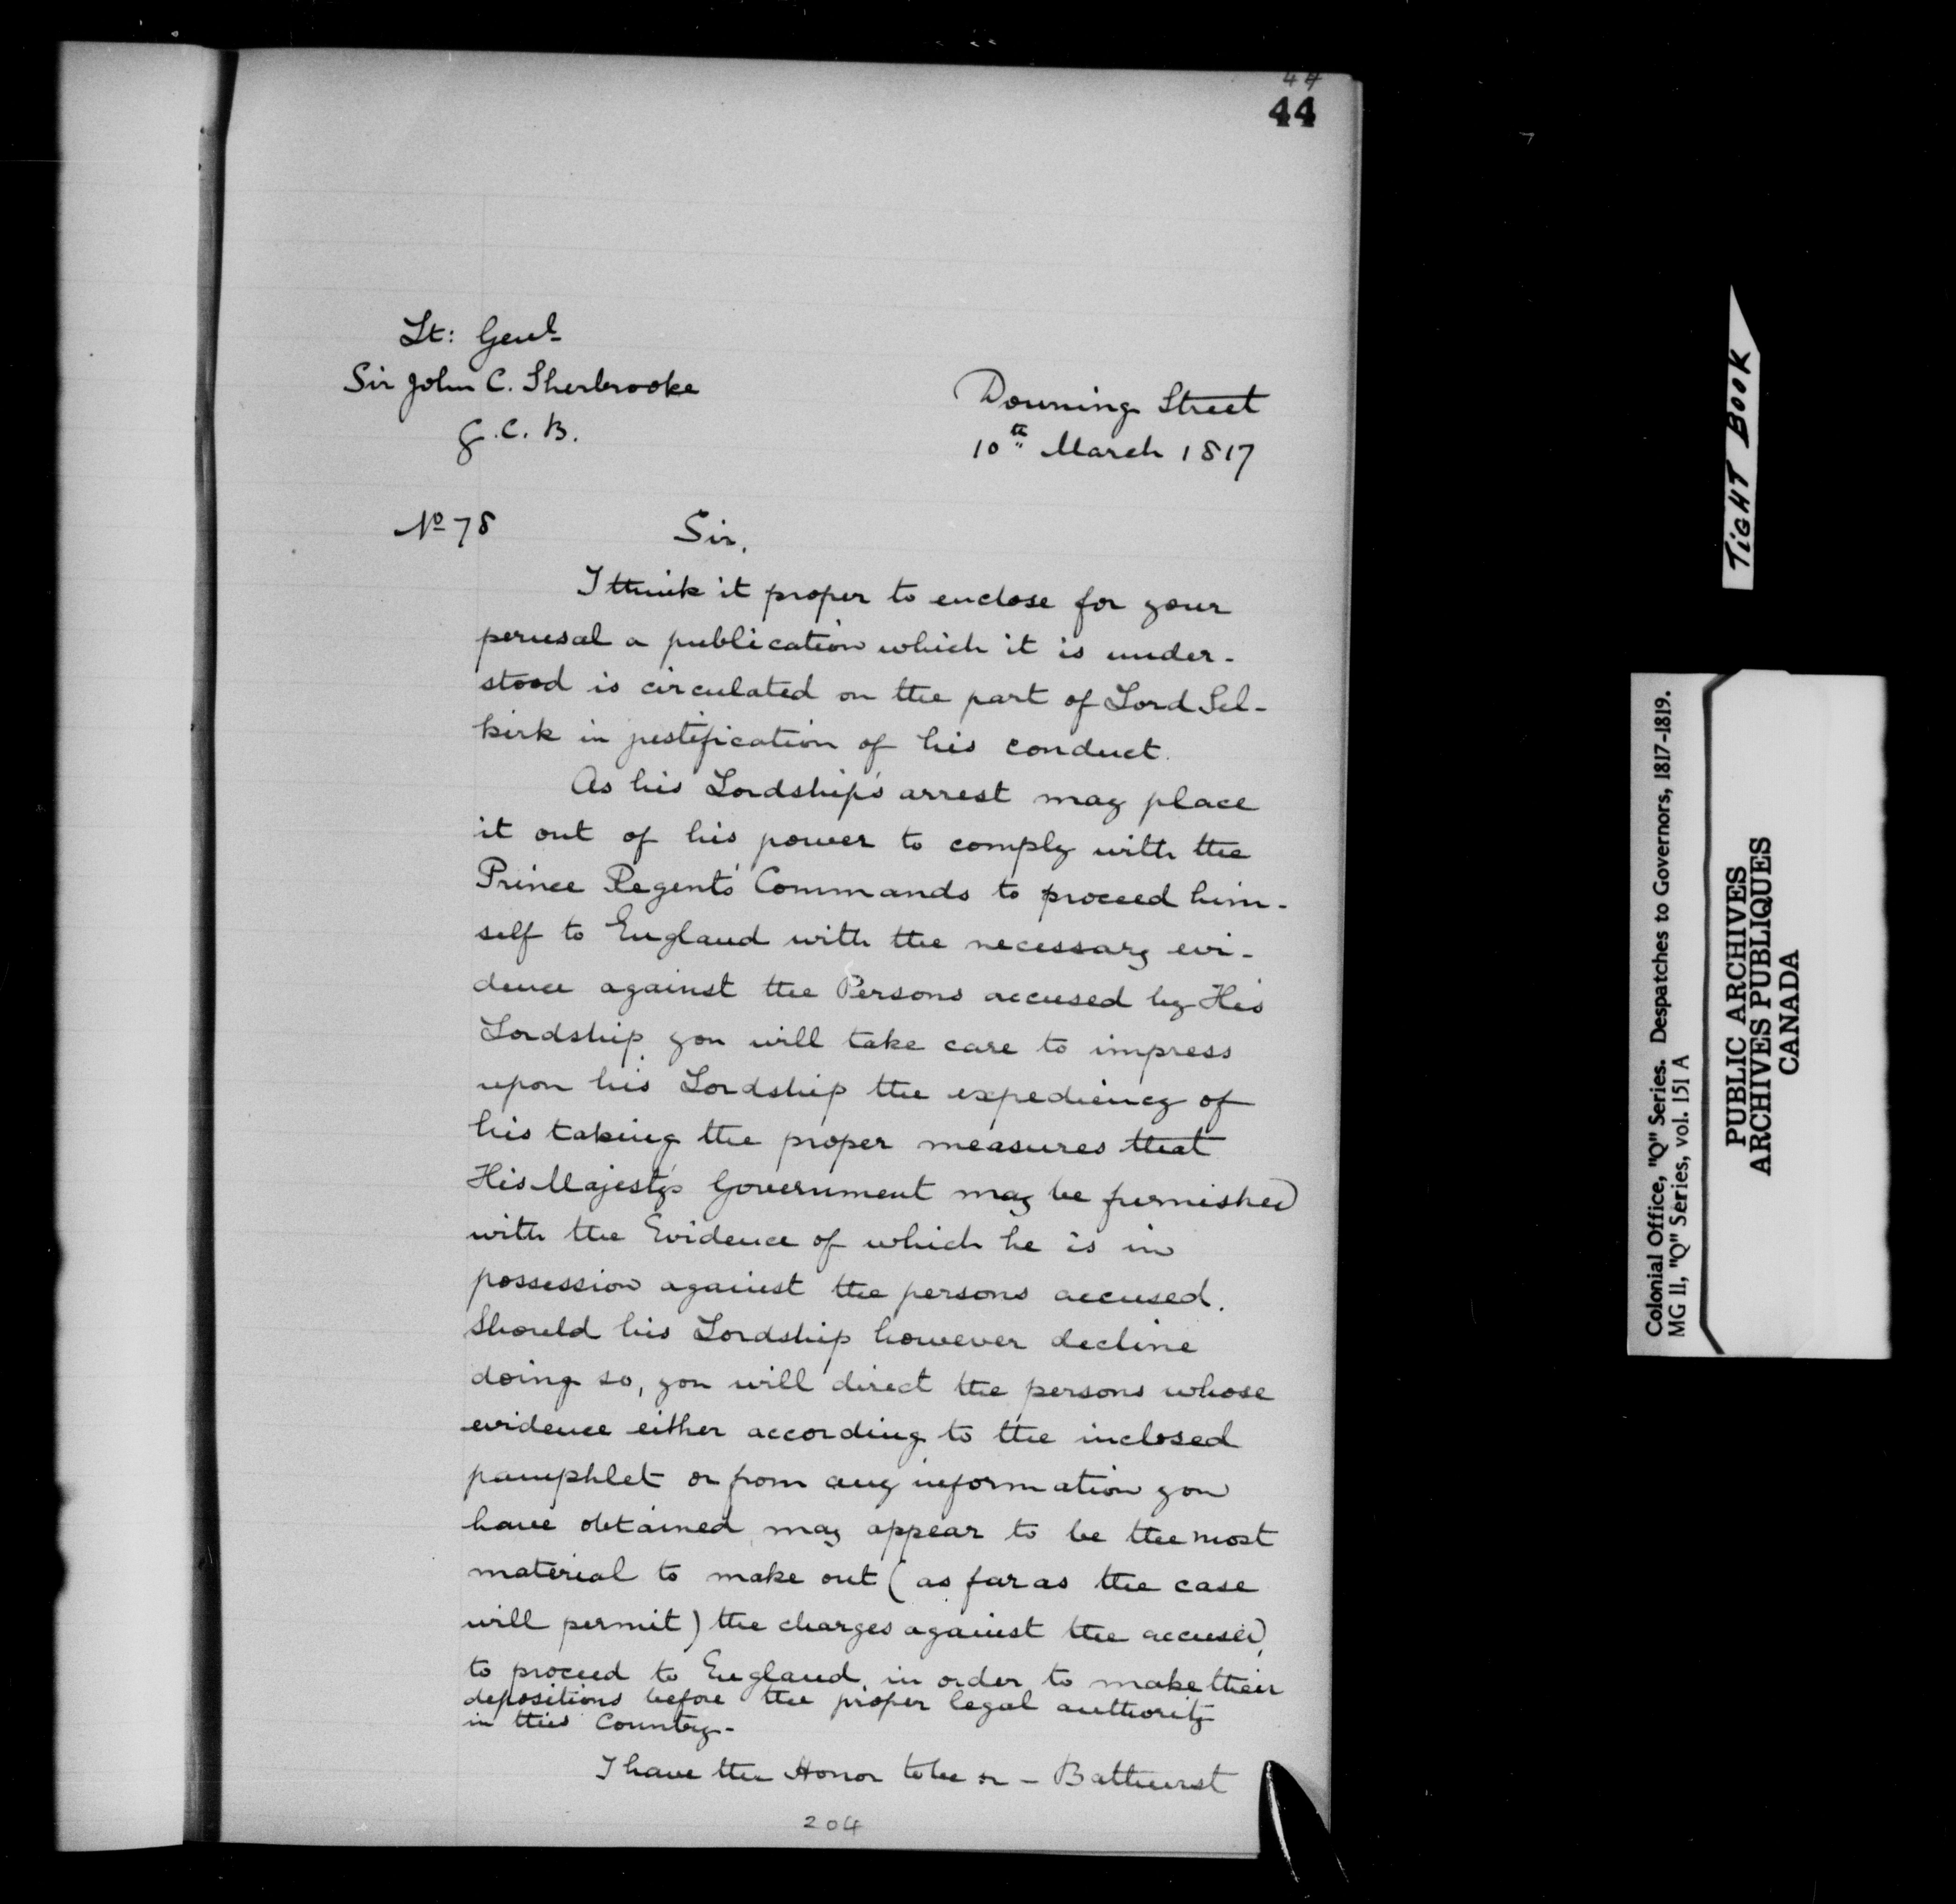 44
44
Lt: Genl
Sir John C. Sherbrooke
G.C.B.
Downing Street
10th March 1817
No 78
Sir,
I think it proper to enclose for your
perusal a publication which it is under-
stood is circulated on the part of Lord Sel-
kirk in justification of his conduct.
As his Lordship's arrest may place
it out of his power to comply with the
Prince Regent's Commands to proceed him-
self to England with the necessary evi-
dence against the Persons accused by His
Lordship you will take care to impress
upon his Lordship the expediency of
his taking the proper measures that
His Majesty's Government may be furnished
with the Evidence of which he is in
possession against the persons accused.
Should his Lordship however decline
doing so, you will direct the persons whose
evidence either according to the inclosed
pamphlet or from any information you
have obtained may appear to be the most
material to make out (as far as the case
will permit) the charges against the accused,
to proceed to England, in order to make their
depositions before the proper legal authority
in this Country-
I have the Honor to be &c - Bathurst
204
TIGHT BOOK
Colonial Office, "Q" Series. Despatches to Governors, 1817-1819.
MG 11, "Q" Series, vol. 151 A
PUBLIC ARCHIVES
ARCHIVES PUBLIQUES
CANADA